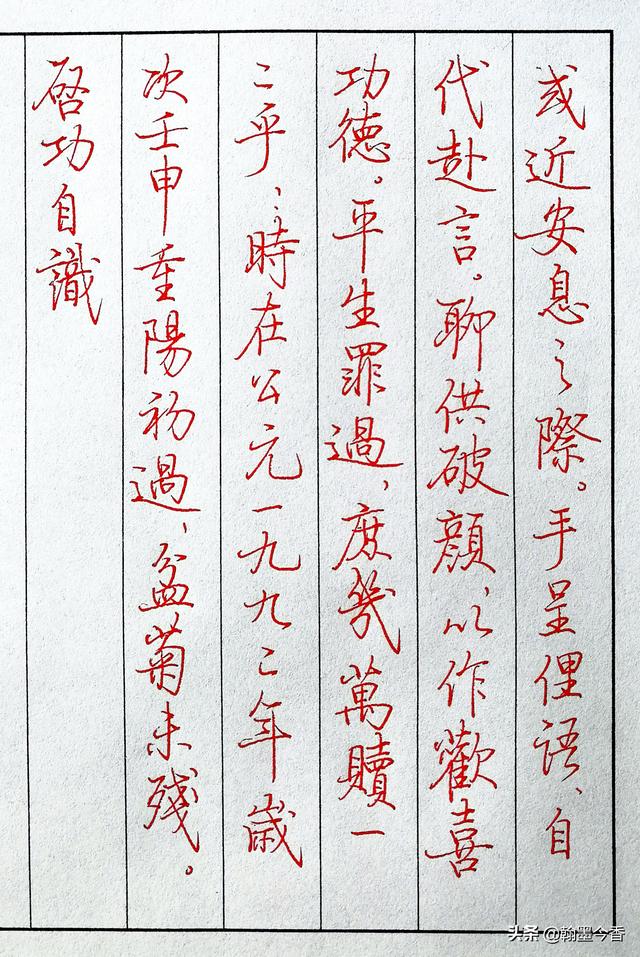 或近安息之際。手呈俚语、自
代赴言。聊供破顏、以作歡喜
功德。平生罪過、庶幾萬贖一
二乎、时在公元一九九二年歲
次壬申重陽初過、盆菊未殘。
啓功自識
头条 @翰墨今香